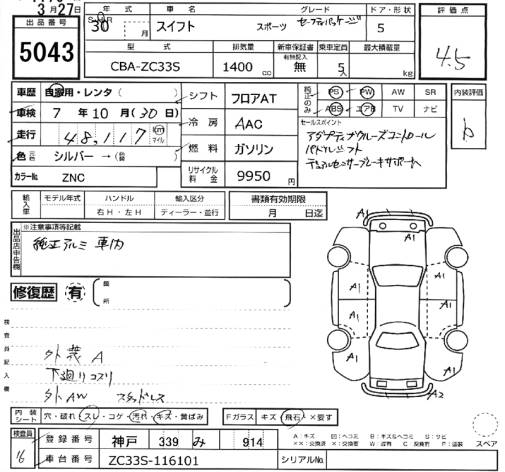 3月27日
出品番号
5043
年式 車名 グレード ドア・形状
30 年 月 スイフト スポーツ セーフティパッケージ 5
型式 排気量 新車保証書 有無記入 乗車定員 最大積載量
CBA-ZC33S 1400 cc 無 5人 kg
評価点
4.5
車歴 自家用・レンタ( )
車検 7年10月(30日)
走行 48,117 km マイル
色 元色 シルバー →( )
カラーNo. ZNC
シフト フロアAT
冷房 AAC
燃料 ガソリン
リサイクル料金 9950円
PS PW AW SR
ABS エアB TV ナビ
セールスポイント
アダプティブクルーズコントロール
パドルシフト
デュアルセンサーブレーキサポート
内装評価
b
輸入車 モデル年式 ハンドル 輸入区分
年 右H・左H ディーラー・並行
書類有効期限
月 日迄
出品店申告欄
※注意事項等記載
純正アルミ 車内
修復歴 有
箇所
検査員記入欄
外装A
下廻りコスリ
外AW スタッドレス
A1
A1
A1
A1
A1
A1
A1
A2
内装シート 穴・破れ スレ・コゲ・汚れ・キズ・黄ばみ
Fガラス キズ・飛石・×要す
検査員
16
登録番号 神戸 339 み 914
車台番号 ZC33S-116101
シリアルNo.
A:キズ B:キズ&ヘコミ S:サビ
スペア